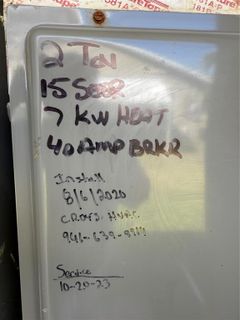 2 Ton
15 Seer
7 KW HEAT
40 AMP BRKR
Install
8/6/2020
HVAC
941-639-
Service
10-20-23